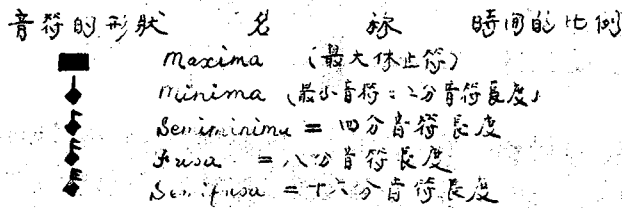 音符的形狀 名 称 時间的比例
maxima (最大休止符)
minima (最小音符:二分音符長度)
Seminima = 四分音符長度
Fusa = 八分音符長度
Semifusa = 十六分音符長度